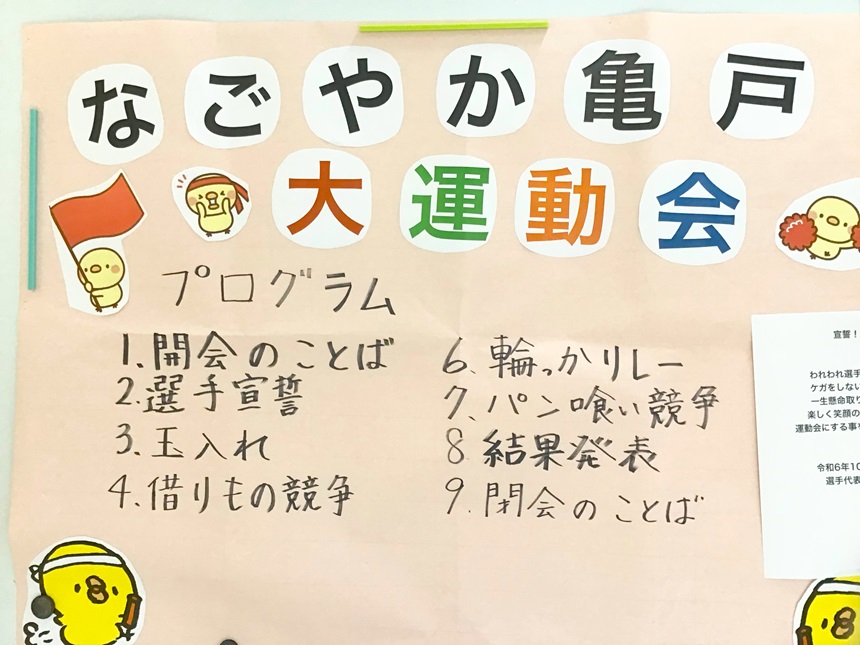 なごやか亀戸
大運動会
プログラム
1. 開会のことば
2. 選手宣誓
3. 玉入れ
4. 借りもの競争
6. 輪っかリレー
7. パン喰い競争
8 結果発表
9. 閉会のことば
宣誓！
われわれ選手
ケガをしない
一生懸命取り
楽しく笑顔の
運動会にする事を
令和6年10
選手代表